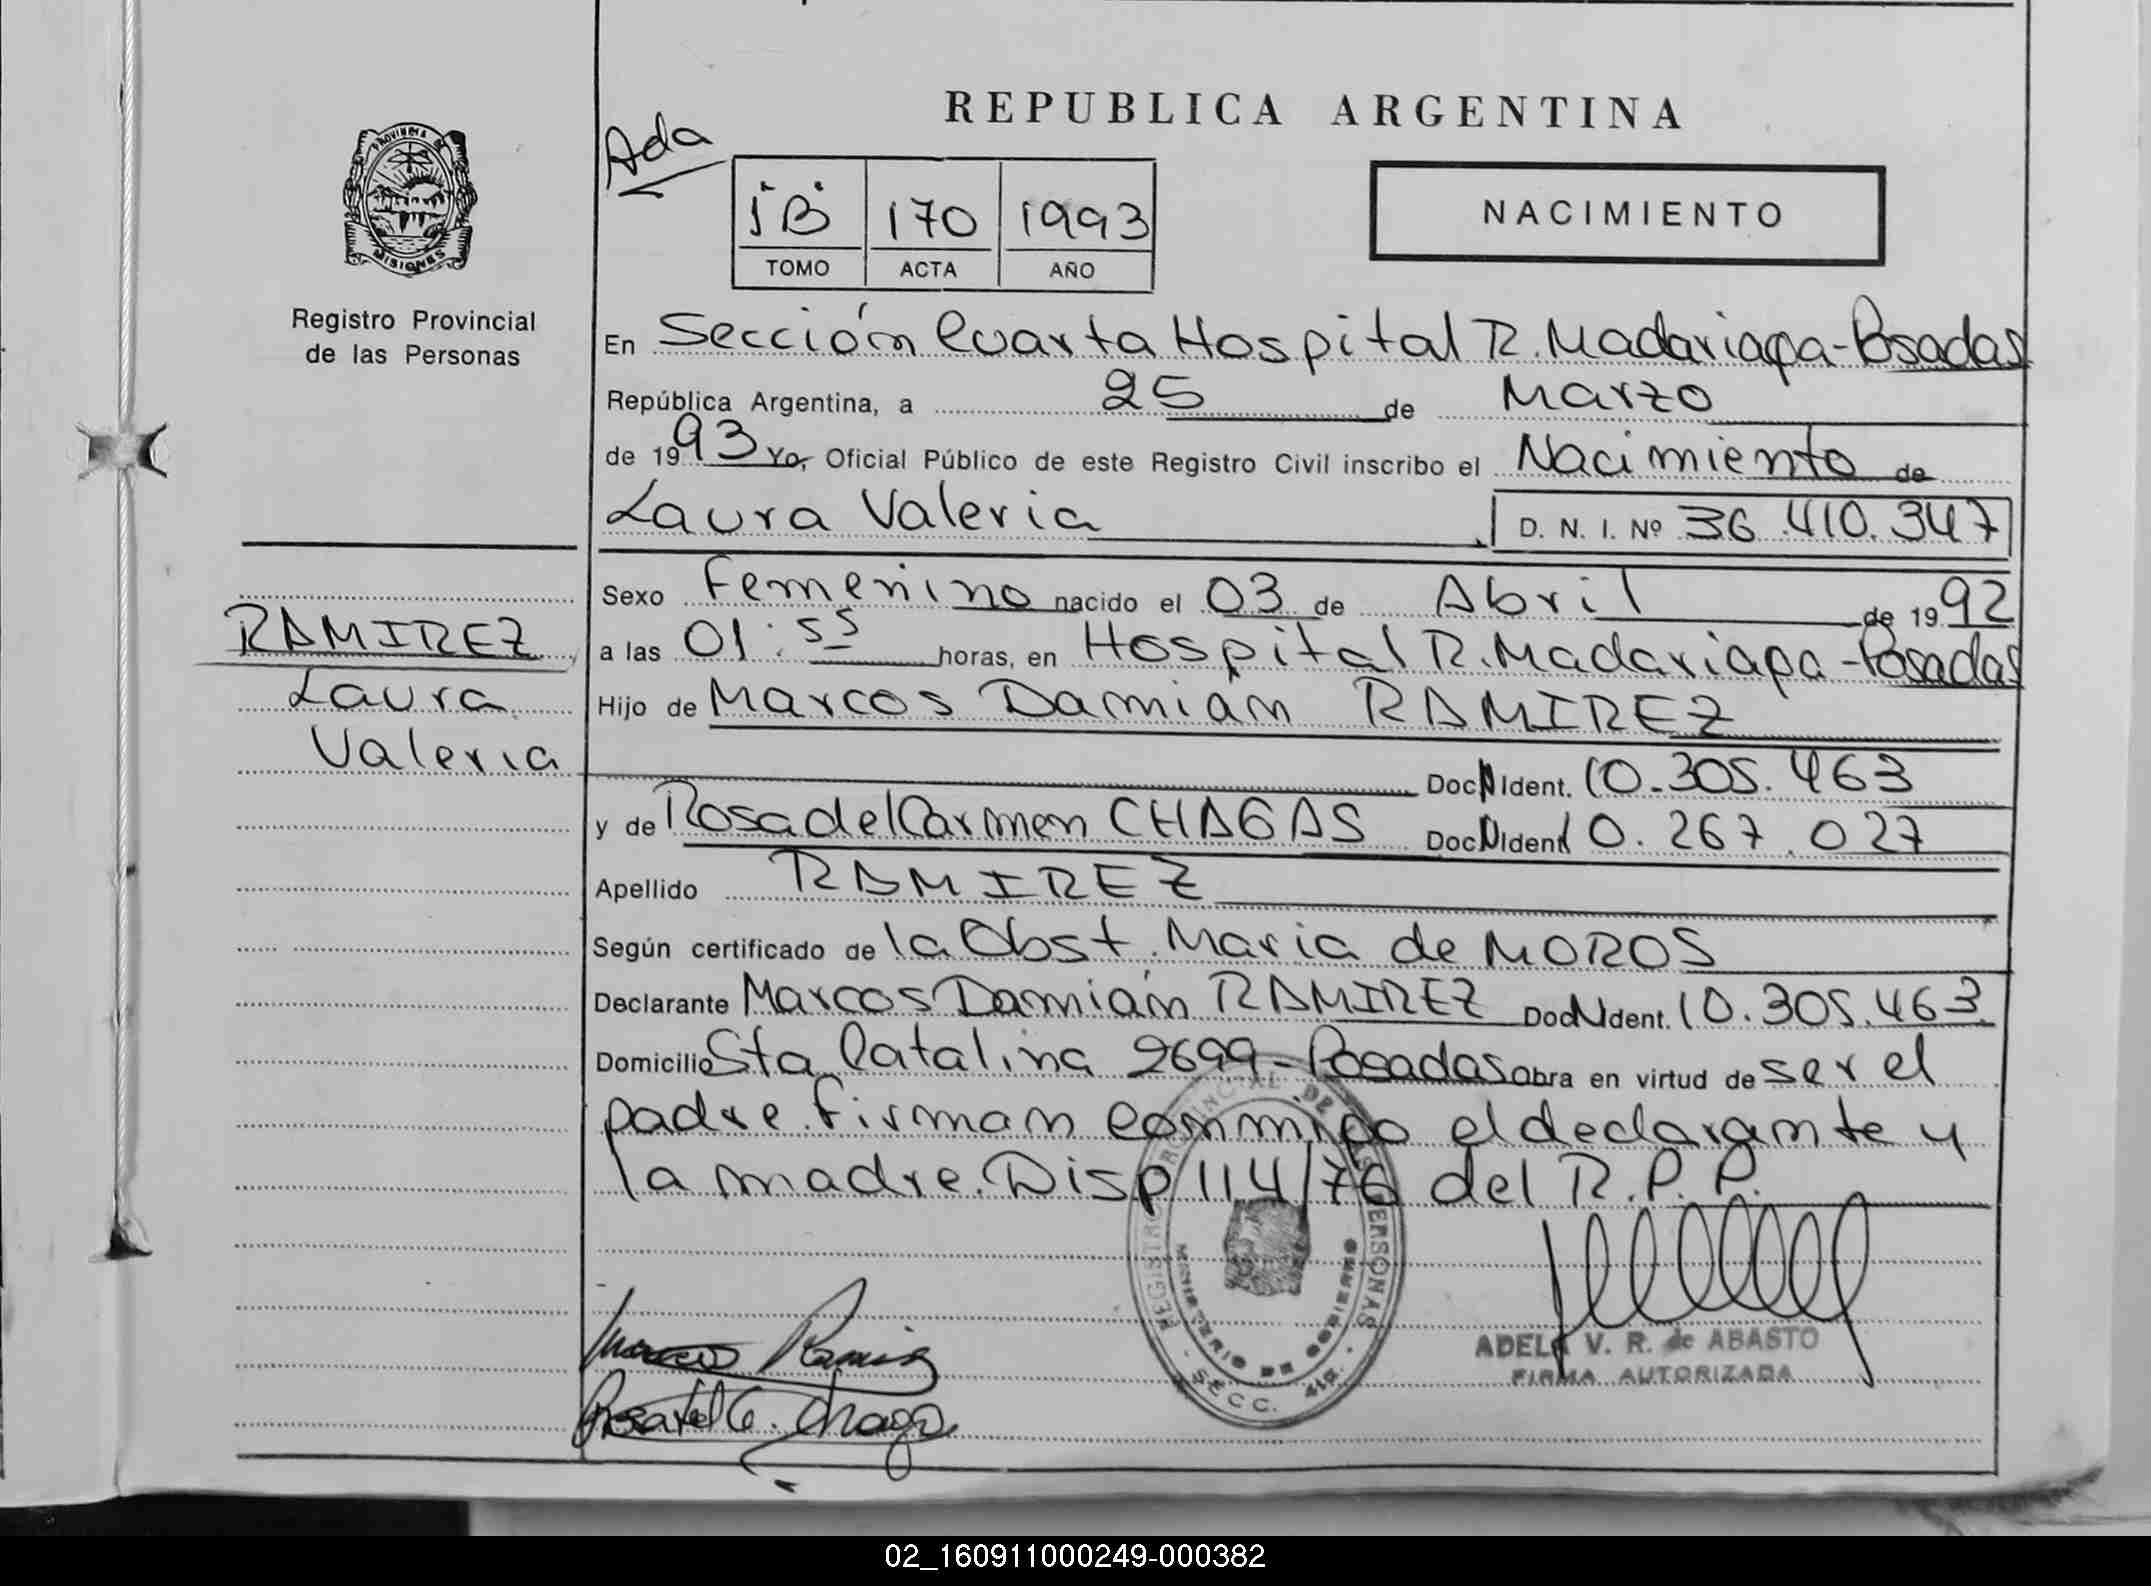 REPUBLICA ARGENTINA
Ada
PROVINCIA DE
MISIONES
Registro Provincial
de las Personas
1B 170 1993
TOMO ACTA AÑO
NACIMIENTO
En Sección Cuarta Hospital R. Madariaga-Posadas
República Argentina, a 25 de Marzo
de 1993 Yo, Oficial Público de este Registro Civil inscribo el Nacimiento de
Laura Valeria D. N. I. Nº 36.410.347
Sexo Femenino nacido el 03 de Abril de 1992
a las 01:55 horas, en Hospital R. Madariaga-Posadas
Hijo de Marcos Damián RAMIREZ
Doc. Ident. 10.305.463
y de Rosa del Carmen CHAGAS Doc. Ident. 10.267.027
Apellido RAMIREZ
Según certificado de la Obst. Maria de MOROS
Declarante Marcos Damián RAMIREZ Doc. Ident. 10.305.463
Domicilio Sta Catalina 2699-Posadas obra en virtud de ser el
padre. Firman conmigo el declarante y
la madre. Disp 114/76 del R.P.P.
RAMIREZ
Laura
Valeria
REGISTRO PROVINCIAL DE LAS PERSONAS
MINISTERIO DE GOBIERNO
SECC. 4ta.
ADELA V. R. de ABASTO
FIRMA AUTORIZADA
Marcos Ramirez
Rosa del C. Chaga
02_160911000249-000382